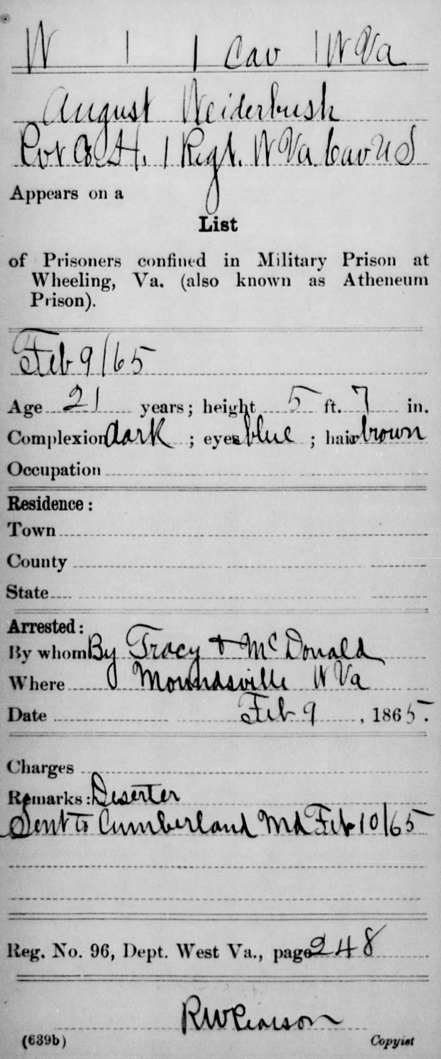 W | 1 Cav | W Va
August Weiderbush
Pvt Co. H. 1 Regt. W Va Cav U S
Appears on a
List
of Prisoners confined in Military Prison at
Wheeling, Va. (also known as Atheneum
Prison).
Feb 9/65
Age 21 years; height 5 ft. 7 in.
Complexion dark ; eyes blue ; hair brown
Occupation
Residence:
Town
County
State
Arrested:
By whom By Tracy & McDonald
Where Moundsville W Va
Date Feb 9, 1865.
Charges
Remarks: Deserter
Sent to Cumberland Md Feb 10/65
Reg. No. 96, Dept. West Va., page 248
R W Pearson
(639b) Copyist